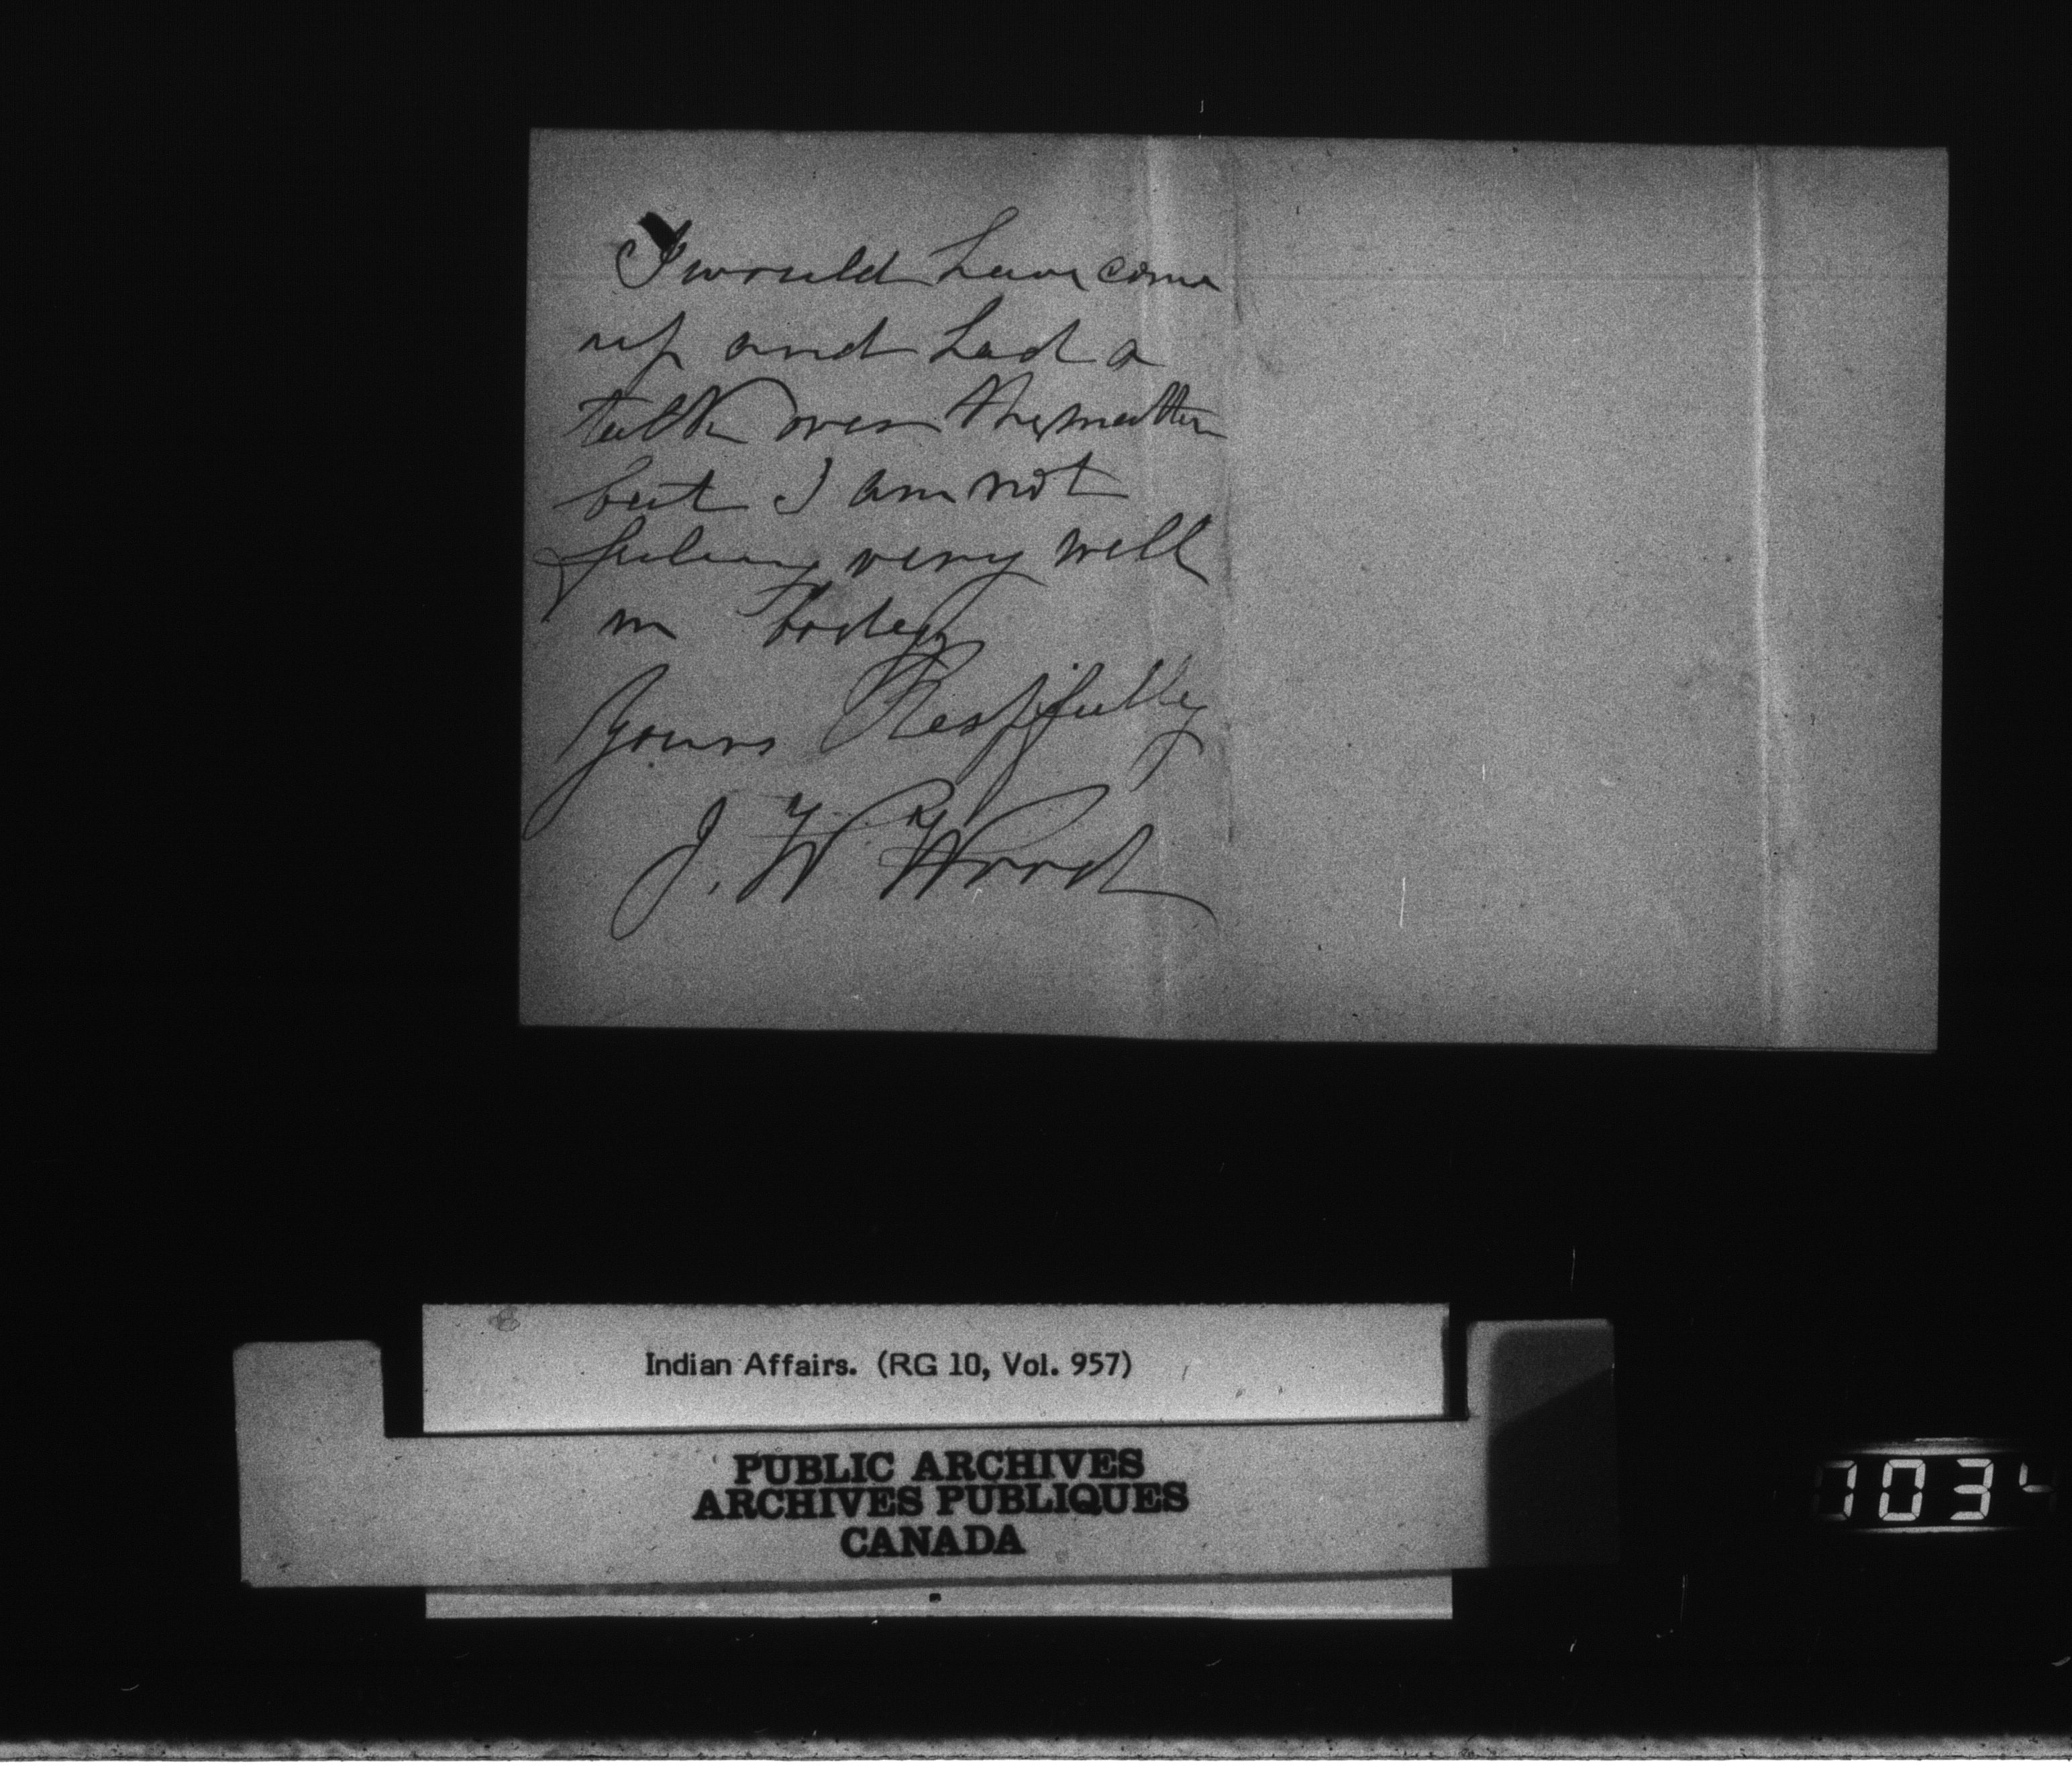 I would have come
up and had a
talk over the matter
but I am not
feeling very well
in body
Yours Respfully
J. W. Wood
Indian Affairs. (RG 10, Vol. 957)
PUBLIC ARCHIVES
ARCHIVES PUBLIQUES
CANADA
1034